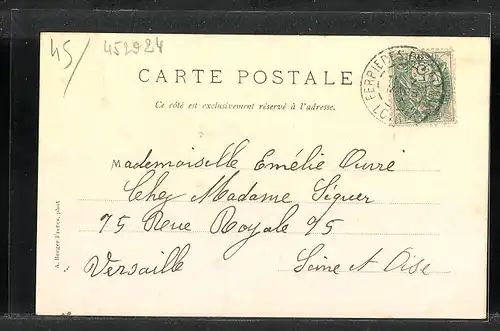 45/ 452924
CARTE POSTALE
Ce côté est exclusivement réservé à l'adresse.
Mademoiselle Emélie Ouvré
Chez Madame Séguer
75 Rue Royale 75
Versaille Seine et Oise
A. Berger Frères, phot
FERRIERES